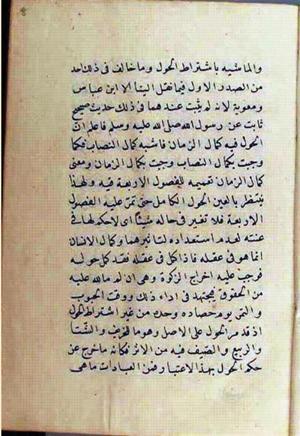 والماشيه باشتراط الحول وما خالف فى ذلك احد
من الصدر الاول فيما نقل الينا الا ابن عباس
ومعوية لانه لم يثبت عندهما فى ذلك حديث صحيح
ثابت عن رسول الله صلى الله عليه وسلم فاعلم ان
الحول فيه كمال الزمان فاشبه كمال النصاب فكما
وجبت بكمال النصاب وجبت بكمال الزمان ومعنى
كمال الزمان تعميمه للفصول الاربعة فيه ولهذا
ينتظر بالعنين الحول الكامل حتى تمر عليه الفصول
الاربعة فلا تغير فى حاله شيئا اى لا حكم لها فى
عنته لعدم استعداده لتاثيرهما وكمال الانسان
انما هو فى عقله فاذا كمل فى عقله فقد كمل حوله
فوجب عليه اخراج الزكوة وهى ان يعلم ما لله عليه
من الحقوق فيجتهد فى اداء ذلك ووقت الحبوب
والتمر يوم حصاده وجده من غير اشتراط الحول
اذ قد مر الحول على الاصل وهو ما للخريف والشتا
والربيع والصيف فيه من الاثر فكانه ما خرج عن
حكم الحول بهذا الاعتبار فمن العبادات ما هى